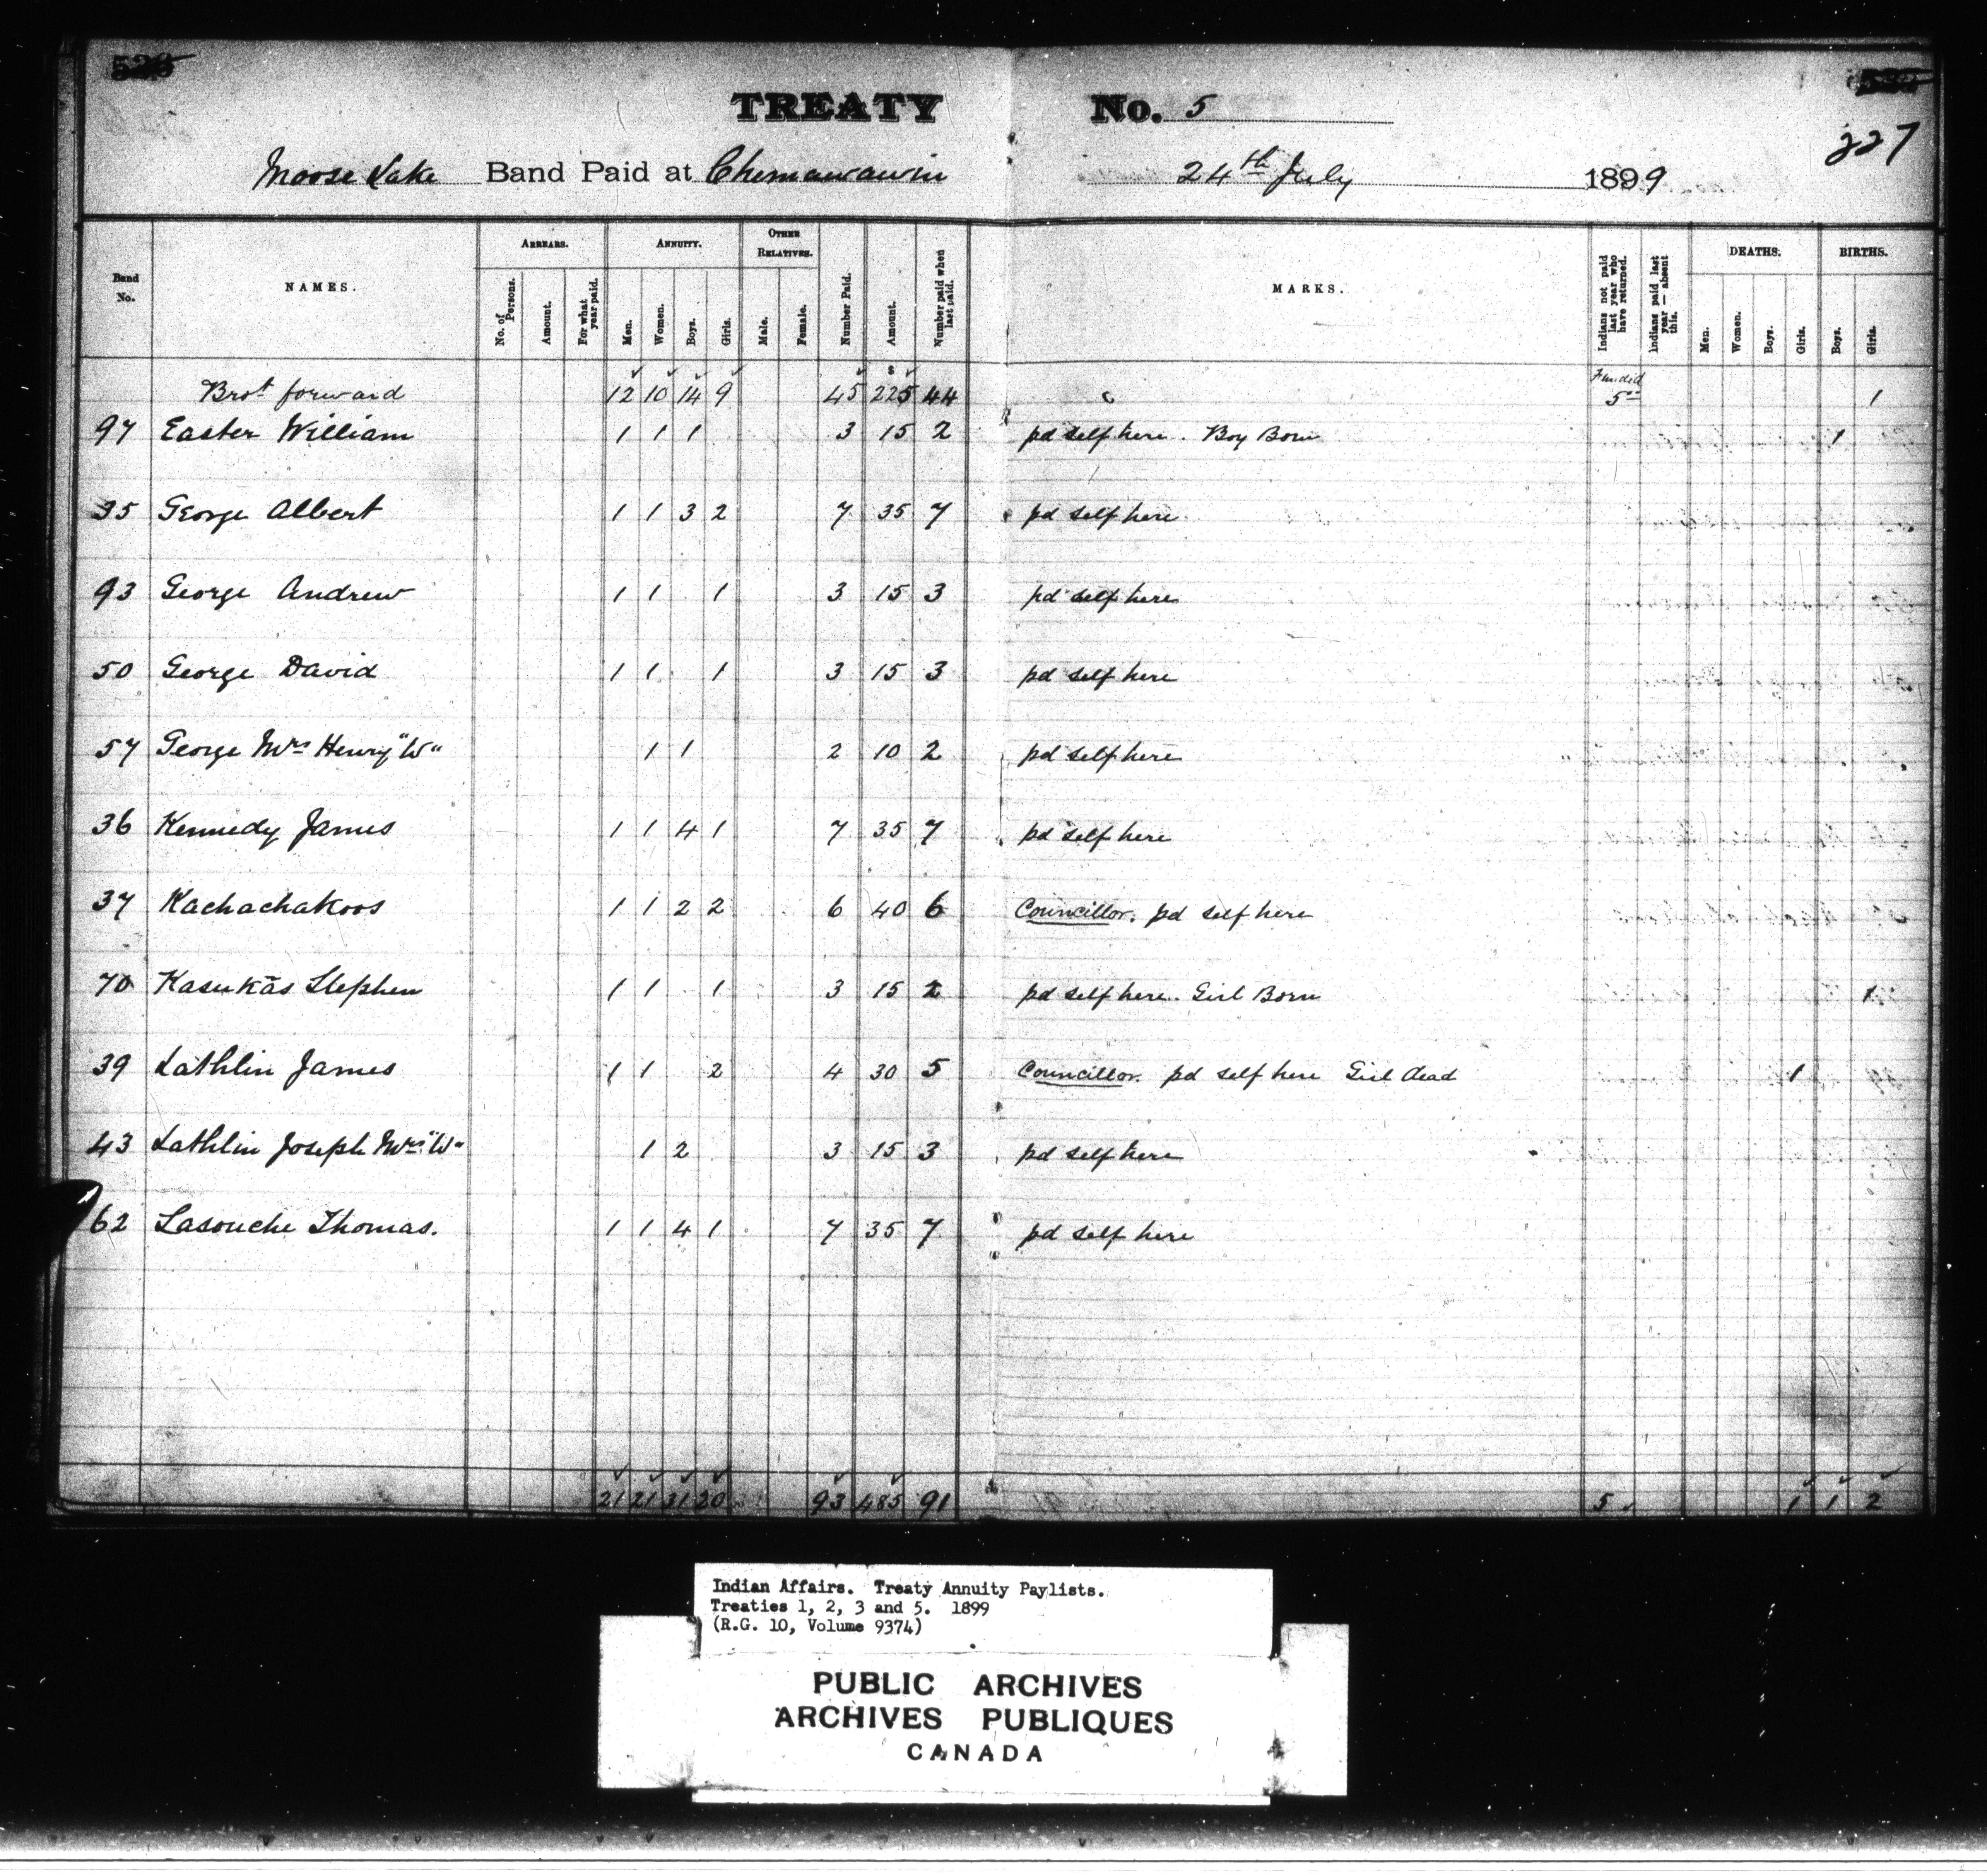 TREATY No. 5
227
Moose Lake Band Paid at Chemawawin 24th July 1899
Band No. NAMES. ARREARS. No. of Persons. Amount. For what year paid. ANNUITY. Men. Women. Boys. Girls. OTHER RELATIVES. Male. Female. Number Paid. Amount. Number paid when last paid. MARKS. Indians not paid last year who have returned. Indians paid last year — absent this. DEATHS. Men. Women. Boys. Girls. BIRTHS. Boys. Girls.
Brot forward 12 10 14 9 45 $225 44 Funded 5.00 1
97 Easter William 1 1 1 3 15 2 pd self here. Boy Born 1
35 George Albert 1 1 3 2 7 35 7 pd self here
93 George Andrew 1 1 1 3 15 3 pd self here
50 George David 1 1 1 3 15 3 pd self here
57 George Mrs Henry "W" 1 1 2 10 2 pd self here
36 Kennedy James 1 1 4 1 7 35 7 pd self here
37 Kachachakoos 1 1 2 2 6 40 6 Councillor. pd self here
70 Kasukās Stephen 1 1 1 3 15 2 pd self here. Girl Born 1
39 Lathlin James 1 1 2 4 30 5 Councillor. pd self here Girl dead 1
43 Lathlin Joseph Mrs "W" 1 2 3 15 3 pd self here
62 Lasouche Thomas. 1 1 4 1 7 35 7 pd self here
21 21 31 20 93 485 91 5 1 1 2
Indian Affairs. Treaty Annuity Paylists.
Treaties 1, 2, 3 and 5. 1899
(R.G. 10, Volume 9374)
PUBLIC ARCHIVES
ARCHIVES PUBLIQUES
CANADA